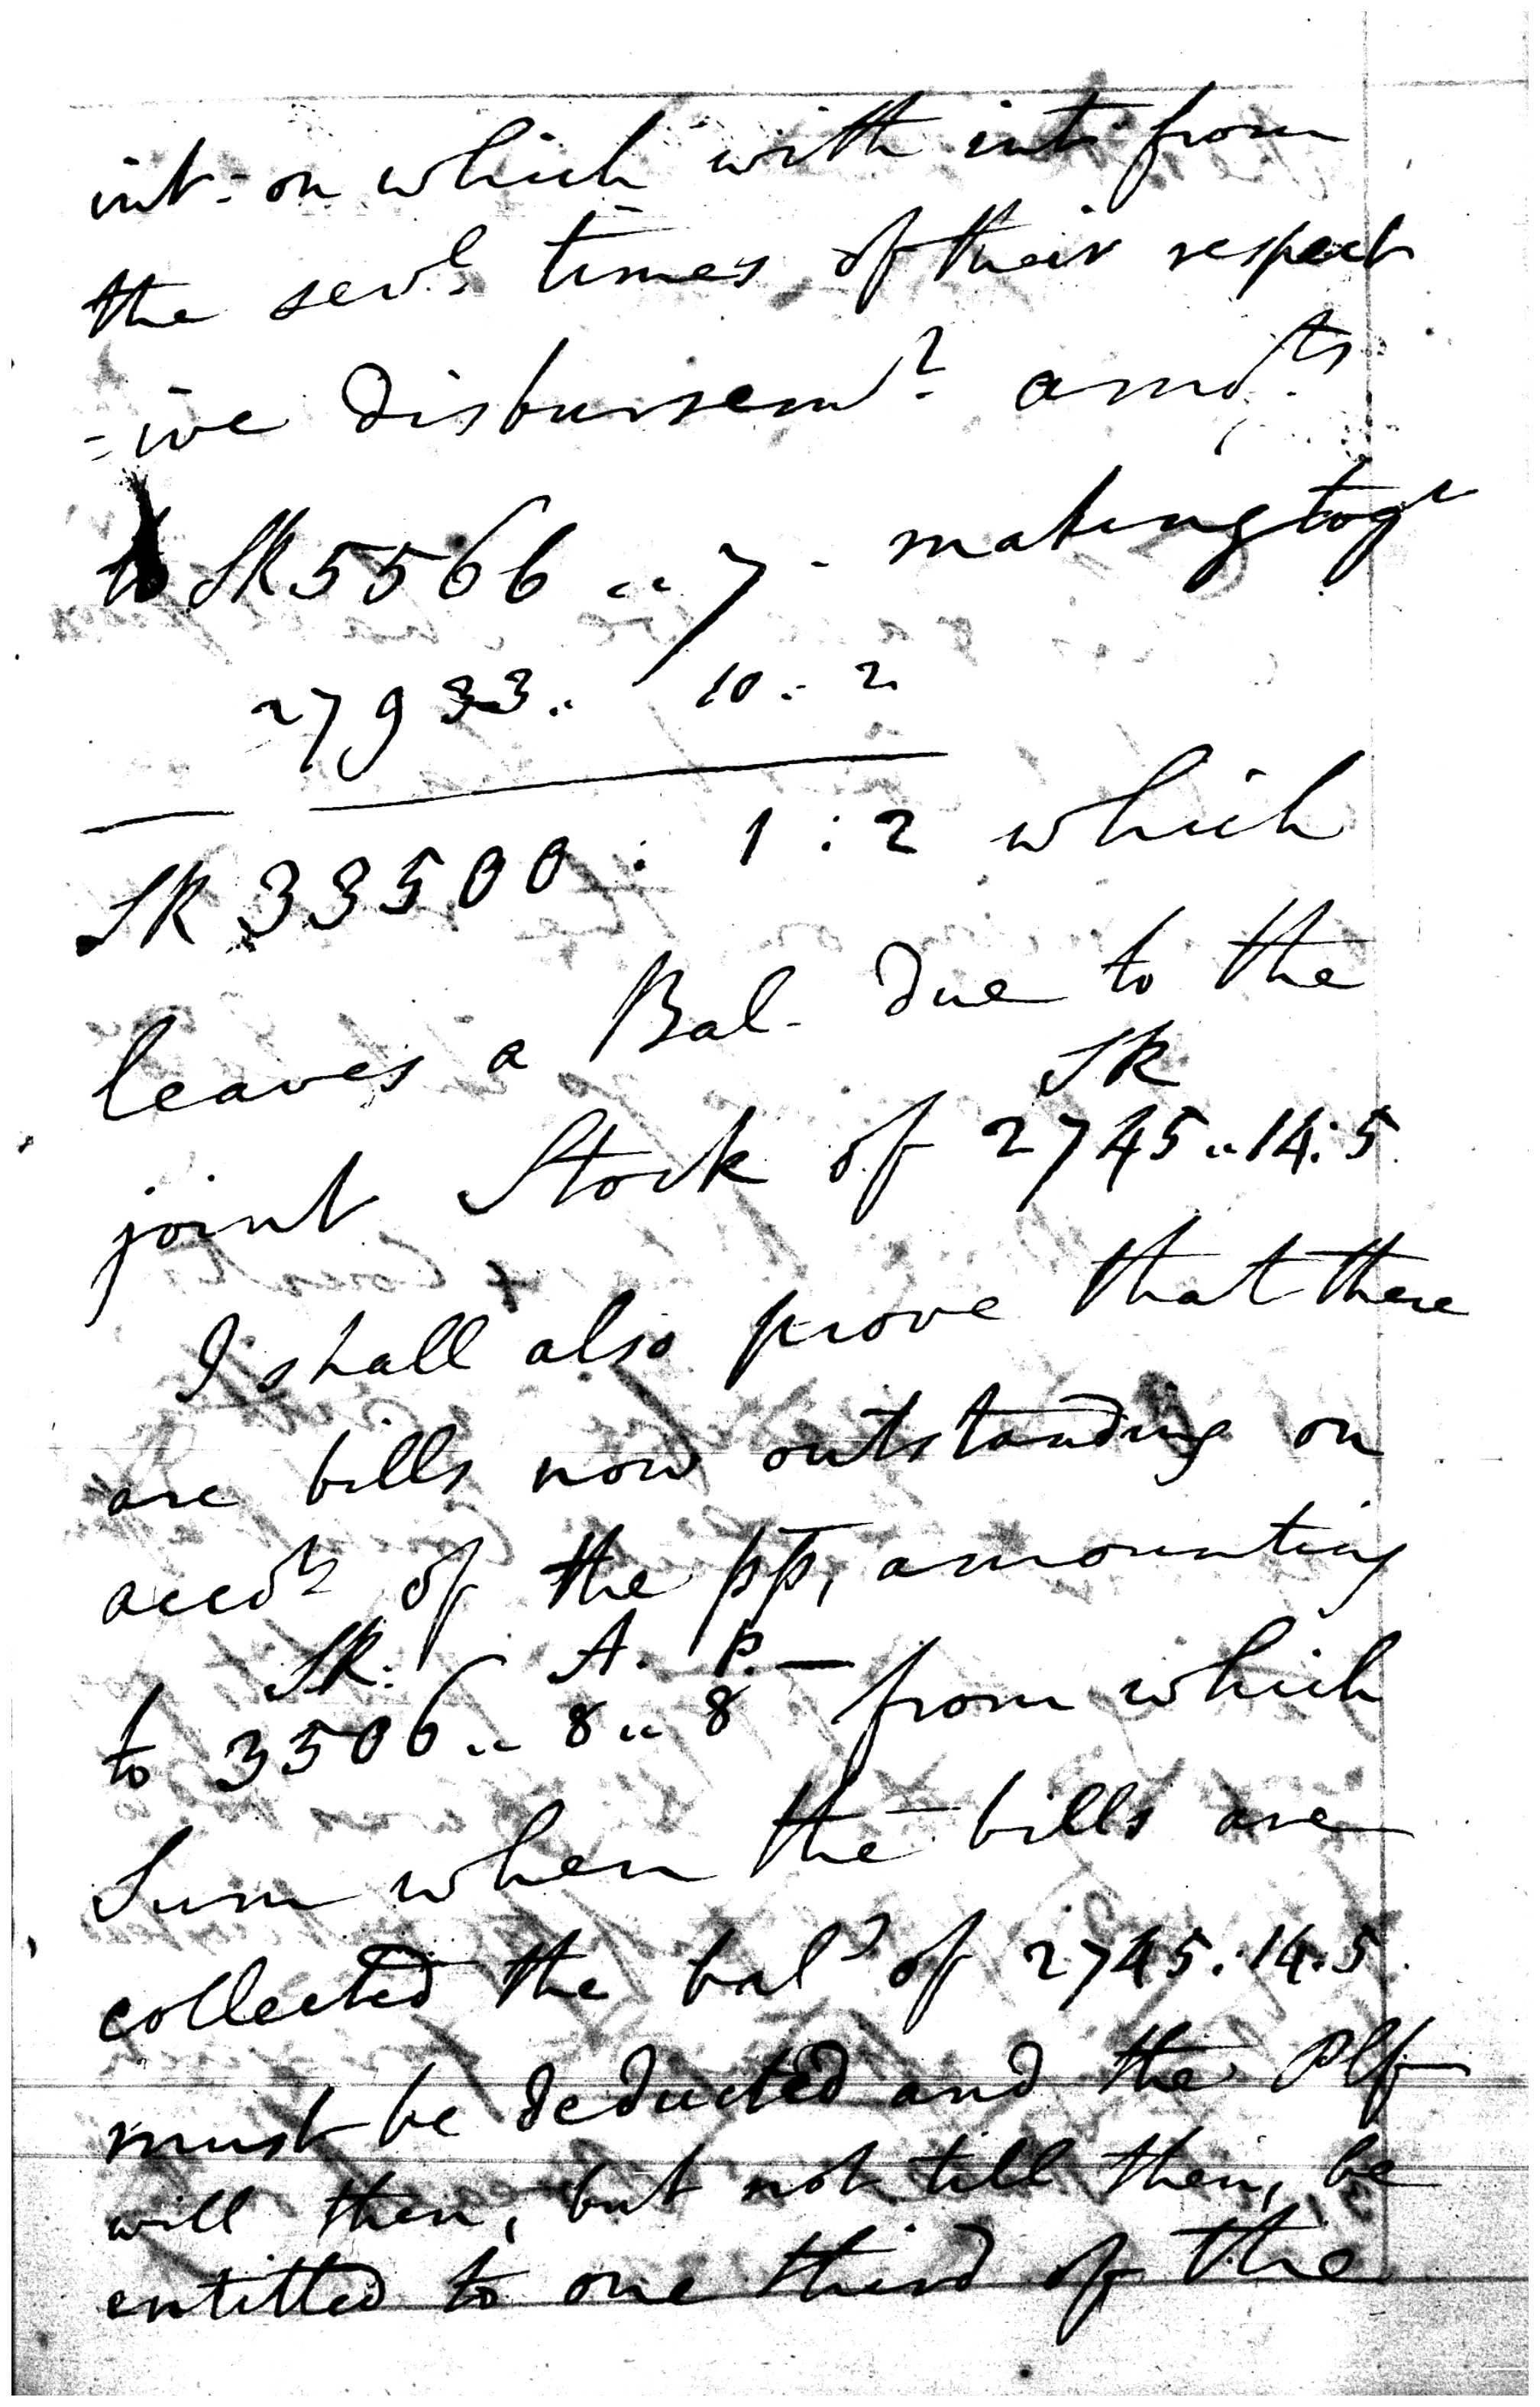 int - on which with int from
the sevl. times of their respect
=ive disbursemt. amots.
to SR 5566 .. 7 - making togr
27933 .. 10 .. 2
SR 33500 : 1 : 2 which
leaves a Bal - due to the
SR
joint Stock of 2745 .. 14 : 5
I shall also prove that there
are bills now outstanding on
accot of the pp, amounting
SR. A. P. —
to 3506 .. 8 .. 8 from which
Sum when the bills are
collected the bale of 2745 : 14 : 5
must be deducted and the Plf
will then, but not till then, be
entitled to one third of the